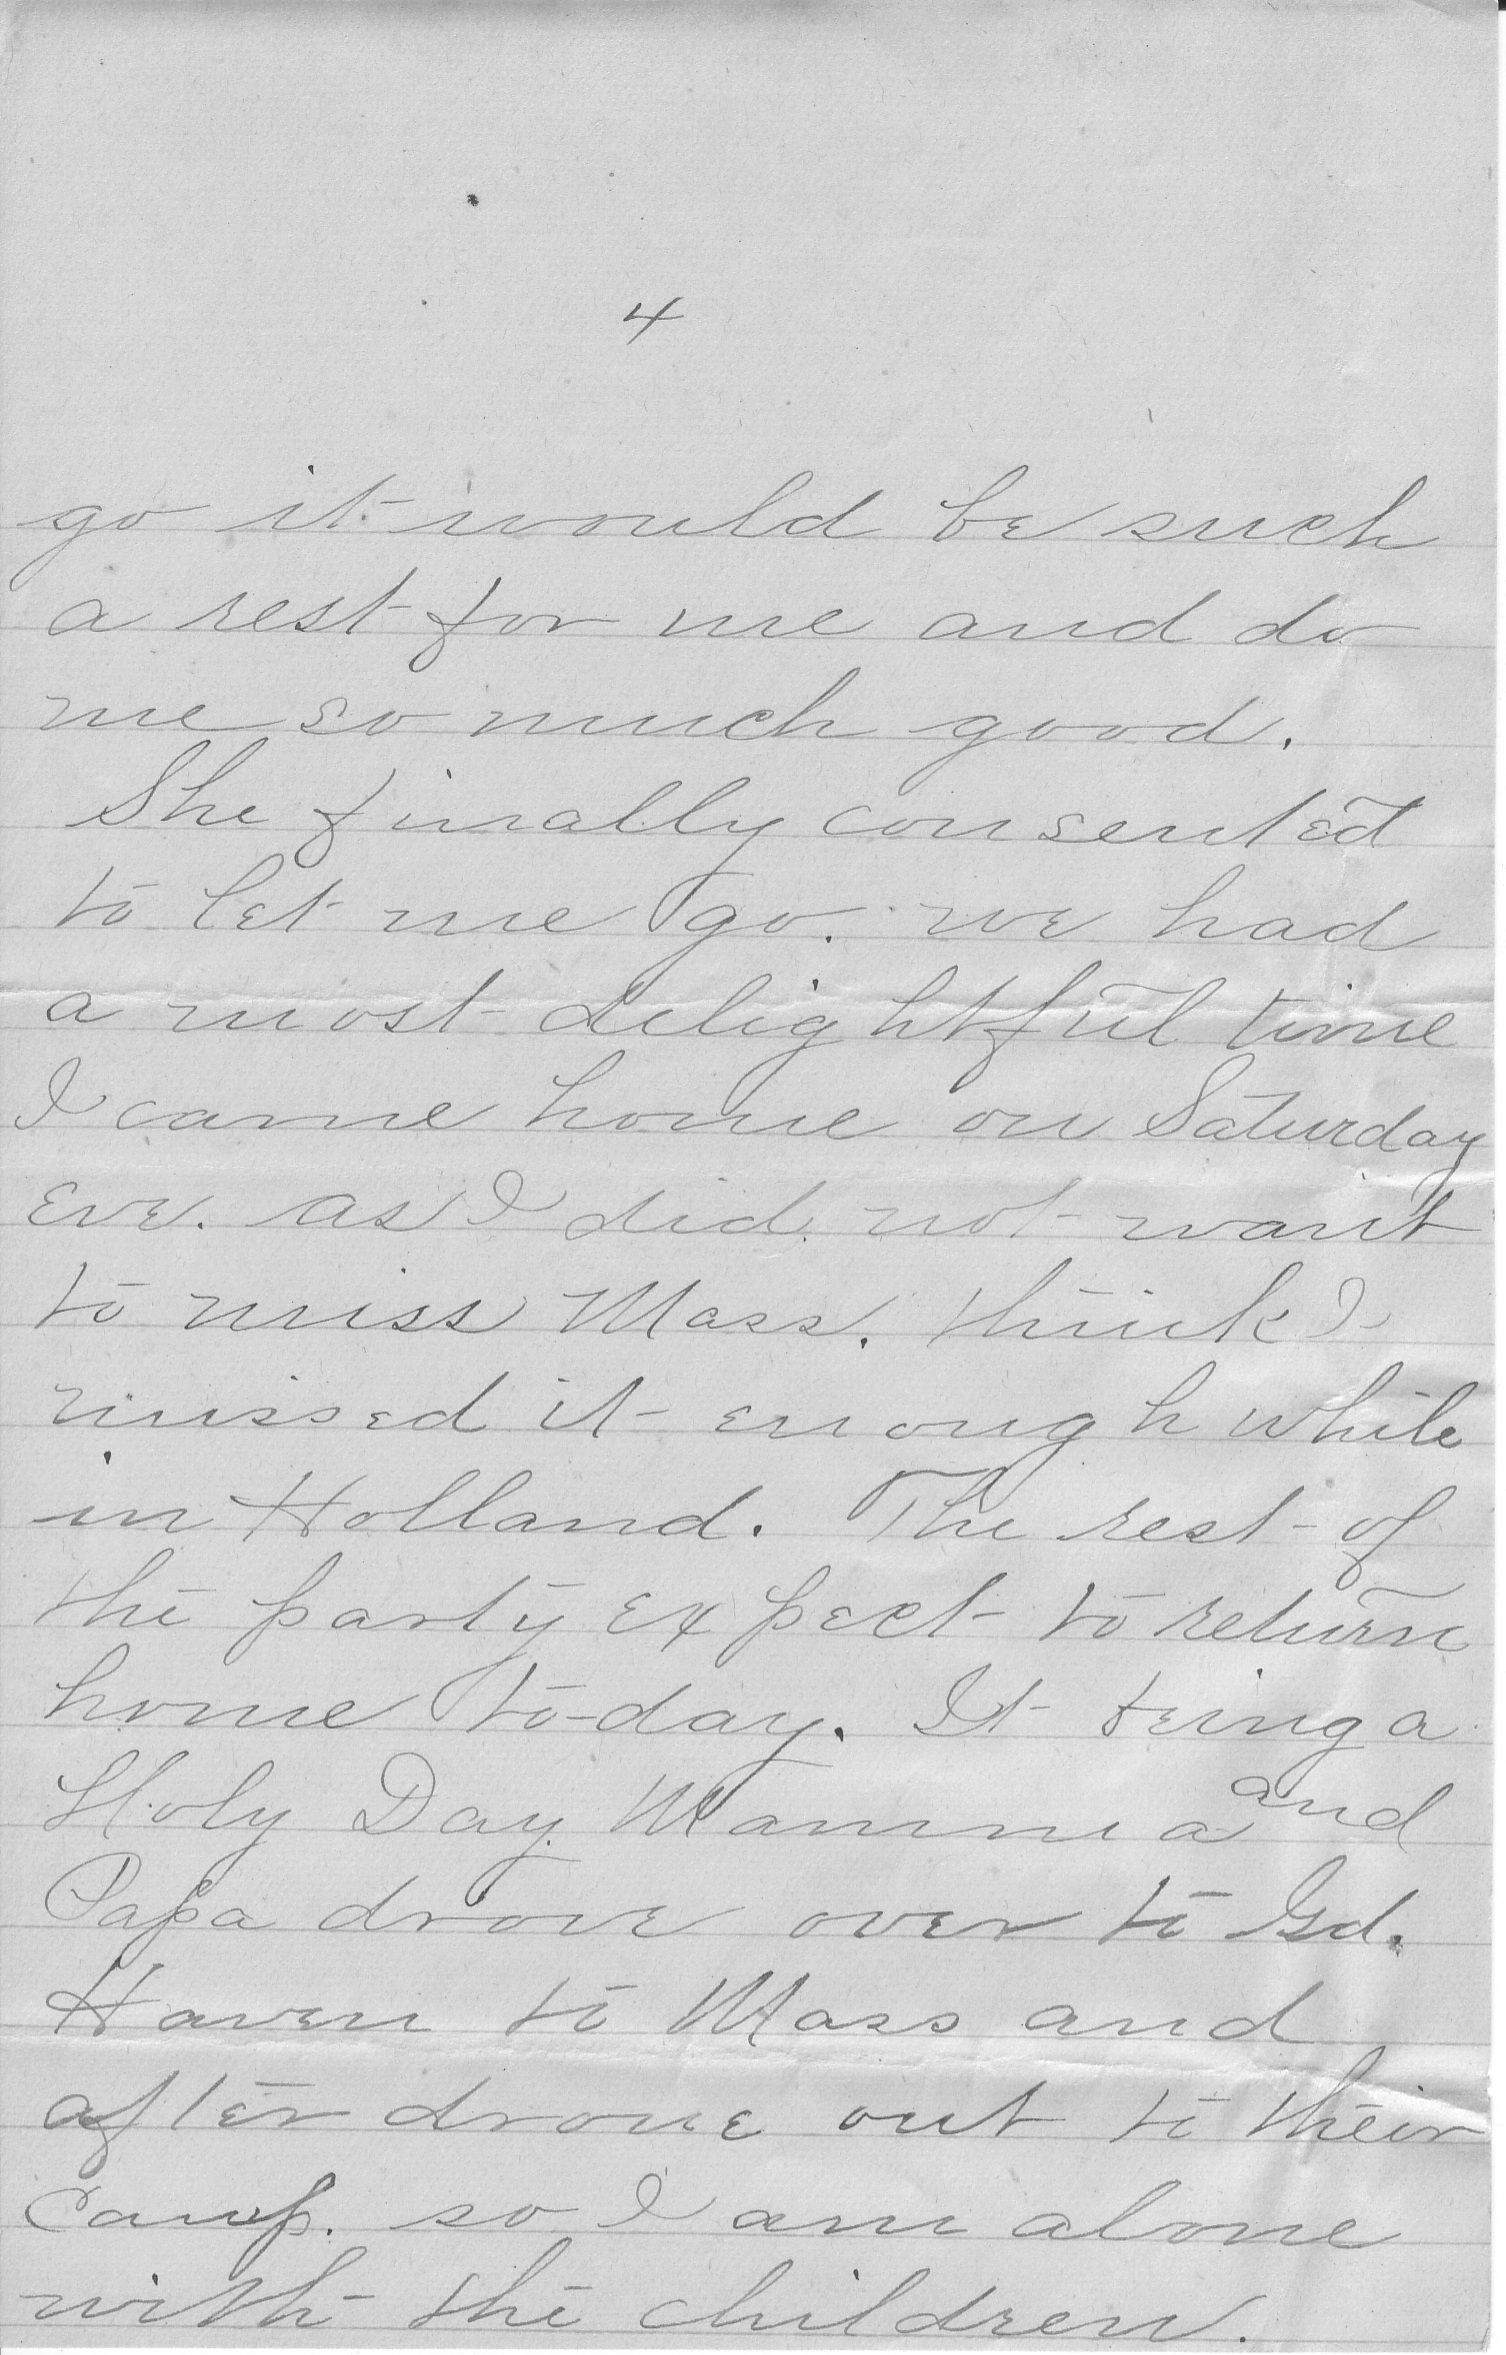 4
go it would be such
a rest for me and do
me so much good.
She finally consented
to let me go. we had
a most delightful time
I came home on Saturday
eve. as I did not want
to miss Mass. think I
missed it enough while
in Holland. The rest of
the party expect to return
home to-day. It being a
Holy Day Mamma and
Papa drove over to Gd.
Haven to Mass and
after drove out to their
camp. so I am alone
with the children.